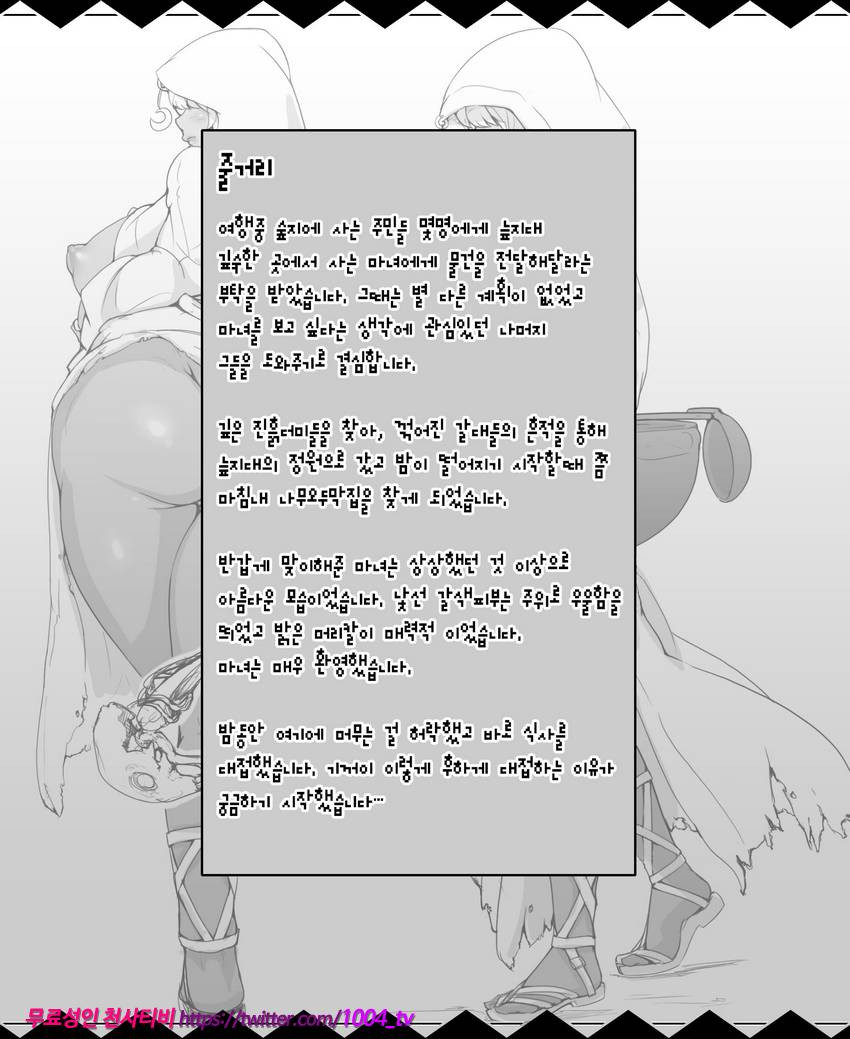 줄거리
여행중 숲지에 사는 주민들 몇명에게 늪지대
깊숙한 곳에서 사는 마녀에게 물건을 전달해달라는
부탁을 받았습니다. 그때는 별 다른 계획이 없었고
마녀를 보고 싶다는 생각에 관심있던 나머지
그들을 도와주기로 결심합니다.
깊은 진흙더미들을 찾아, 꺾어진 갈대들의 흔적을 통해
늪지대의 정원으로 갔고 밤이 떨어지기 시작할때 쯤
마침내 나무오두막집을 찾게 되었습니다.
반갑게 맞이해준 마녀는 상상했던 것 이상으로
아름다운 모습이었습니다. 낯선 갈색피부는 주위로 우울함을
띄었고 밝은 머리칼이 매력적 이었습니다.
마녀는 매우 환영했습니다.
밤동안 여기에 머무는 걸 허락했고 바로 식사를
대접했습니다. 기꺼이 이렇게 후하게 대접하는 이유가
궁금하기 시작했습니다…
무료성인 천사티비 https://twitter.com/1004_tv